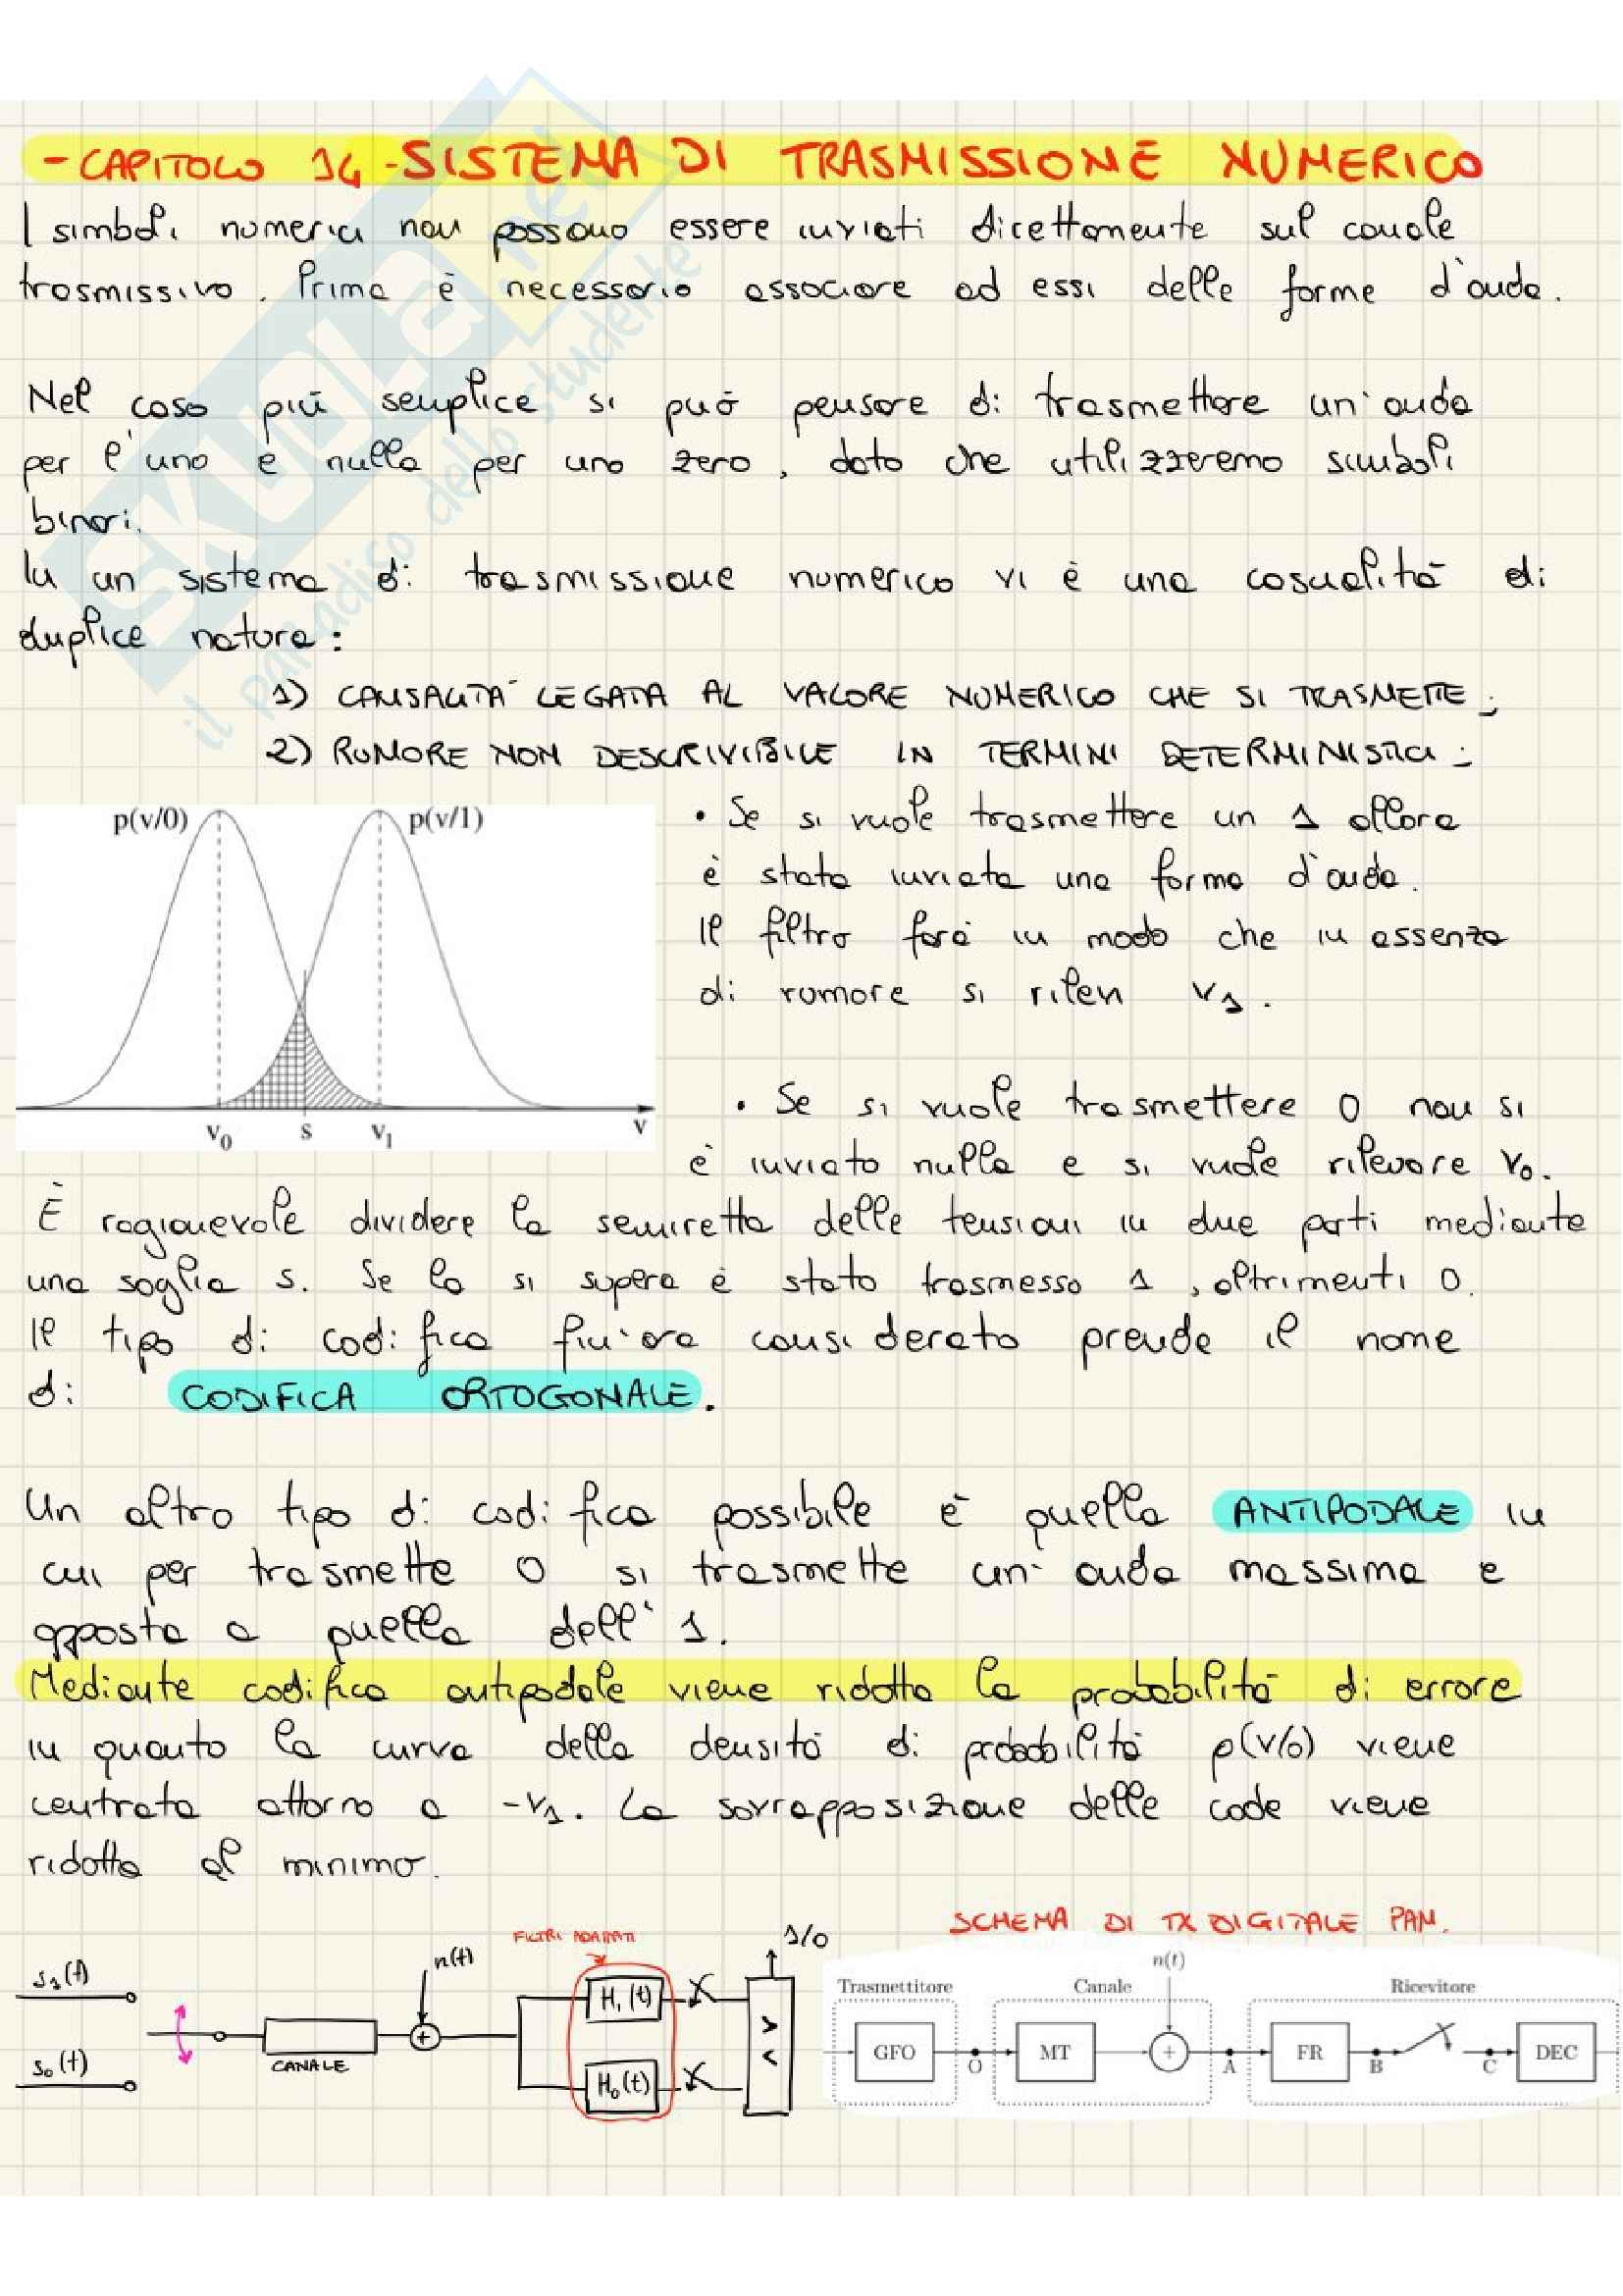 - CAPITOLO 14 - SISTEMA DI TRASMISSIONE NUMERICO
I simboli numerici non possono essere inviati direttamente sul canale
trasmissivo. Prima è necessario associare ad essi delle forme d'onda.
Nel caso più semplice si può pensare di trasmettere un'onda
per l'uno e nulla per uno zero, dato che utilizzeremo simboli
binari.
In un sistema di trasmissione numerico vi è una casualità di
duplice natura:
1) CAUSALITÀ LEGATA AL VALORE NUMERICO CHE SI TRASMETTE;
2) RUMORE NON DESCRIVIBILE IN TERMINI DETERMINISTICI;
p(v/0)
p(v/1)
v0
s
v1
v
• Se si vuole trasmettere un 1 allora
è stata inviata una forma d'onda.
Il filtro farà in modo che in assenza
di rumore si rilevi v1.
• Se si vuole trasmettere 0 non si
è inviato nulla e si vuole rilevare v0.
È ragionevole dividere la semiretta delle tensioni in due parti mediante
una soglia s. Se la si supera è stato trasmesso 1, altrimenti 0.
Il tipo di codifica fin'ora considerato prende il nome
di CODIFICA ORTOGONALE.
Un altro tipo di codifica possibile è quella ANTIPODALE in
cui per trasmette 0 si trasmette un'onda massima e
opposta a quella dell'1.
Mediante codifica antipodale viene ridotta la probabilità di errore
in quanto la curva della densità di probabilità p(v/0) viene
centrata attorno a -v1. La sovrapposizione delle code viene
ridotta al minimo.
s1(t)
s0(t)
CANALE
n(t)
+
FILTRI ADATTATI
H1(t)
H0(t)
>
<
1/0
SCHEMA DI TX DIGITALE PAM.
Trasmettitore
Canale
n(t)
Ricevitore
GFO
O
MT
+
A
FR
B
C
DEC
SKUOLA.net
il paradiso dello studente